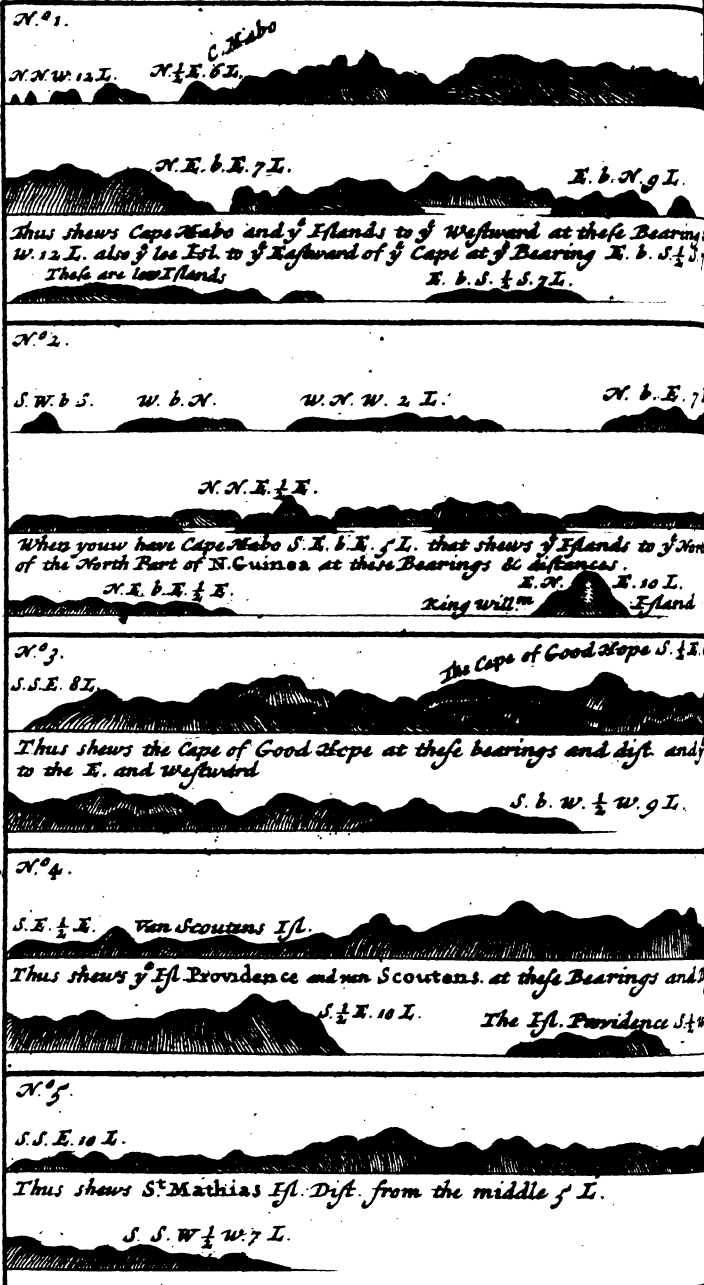 N.º 1.
C. Mabo
N.N.W. 12 L. N.½E. 6 L.
N.E.b.E. 7 L.
E.b.N. 9 L.
Thus shews Cape Mabo and yᵉ Iſlands to yᵉ Weſtward at theſe Bearing
W. 12 L. also yᵉ lee Isl. to yᵉ Eaſtward of yᵉ Cape at yᵉ Bearing E.b.S.½S.
Theſe are low Iſlands E.b.S.½S. 7 L.
N.º 2.
S.W.b S. W.b.N. W.N.W. 2 L. N.b.E. 7
N.N.E.½E.
When youw have Cape Mabo S.E.b.E. 5 L. that shews yᵉ Iſlands to yᵉ Nor
of the North Part of N. Guinea at theſe Bearings & diſtances.
N.E.b.E.½E. E.N. E. 10 L.
King Will.ᵐ Iſland
N.º 3.
The Cape of Good Hope S.½E.
S.S.E. 8 L.
Thus shews the Cape of Good Hope at theſe bearings and diſt. and y
to the E. and Weſtward
S.b.W.½W. 9 L.
N.º 4.
S.E.½E. Van Scoutens Iſl.
Thus shews yᵉ Iſl. Providence and van Scoutens. at theſe Bearings and
S.½E. 10 L. The Iſl. Providence S.½W
N.º 5.
S.S.E. 10 L.
Thus shews Sᵗ Mathias Iſl. Diſt. from the middle 5 L.
S.S.W½W. 7 L.